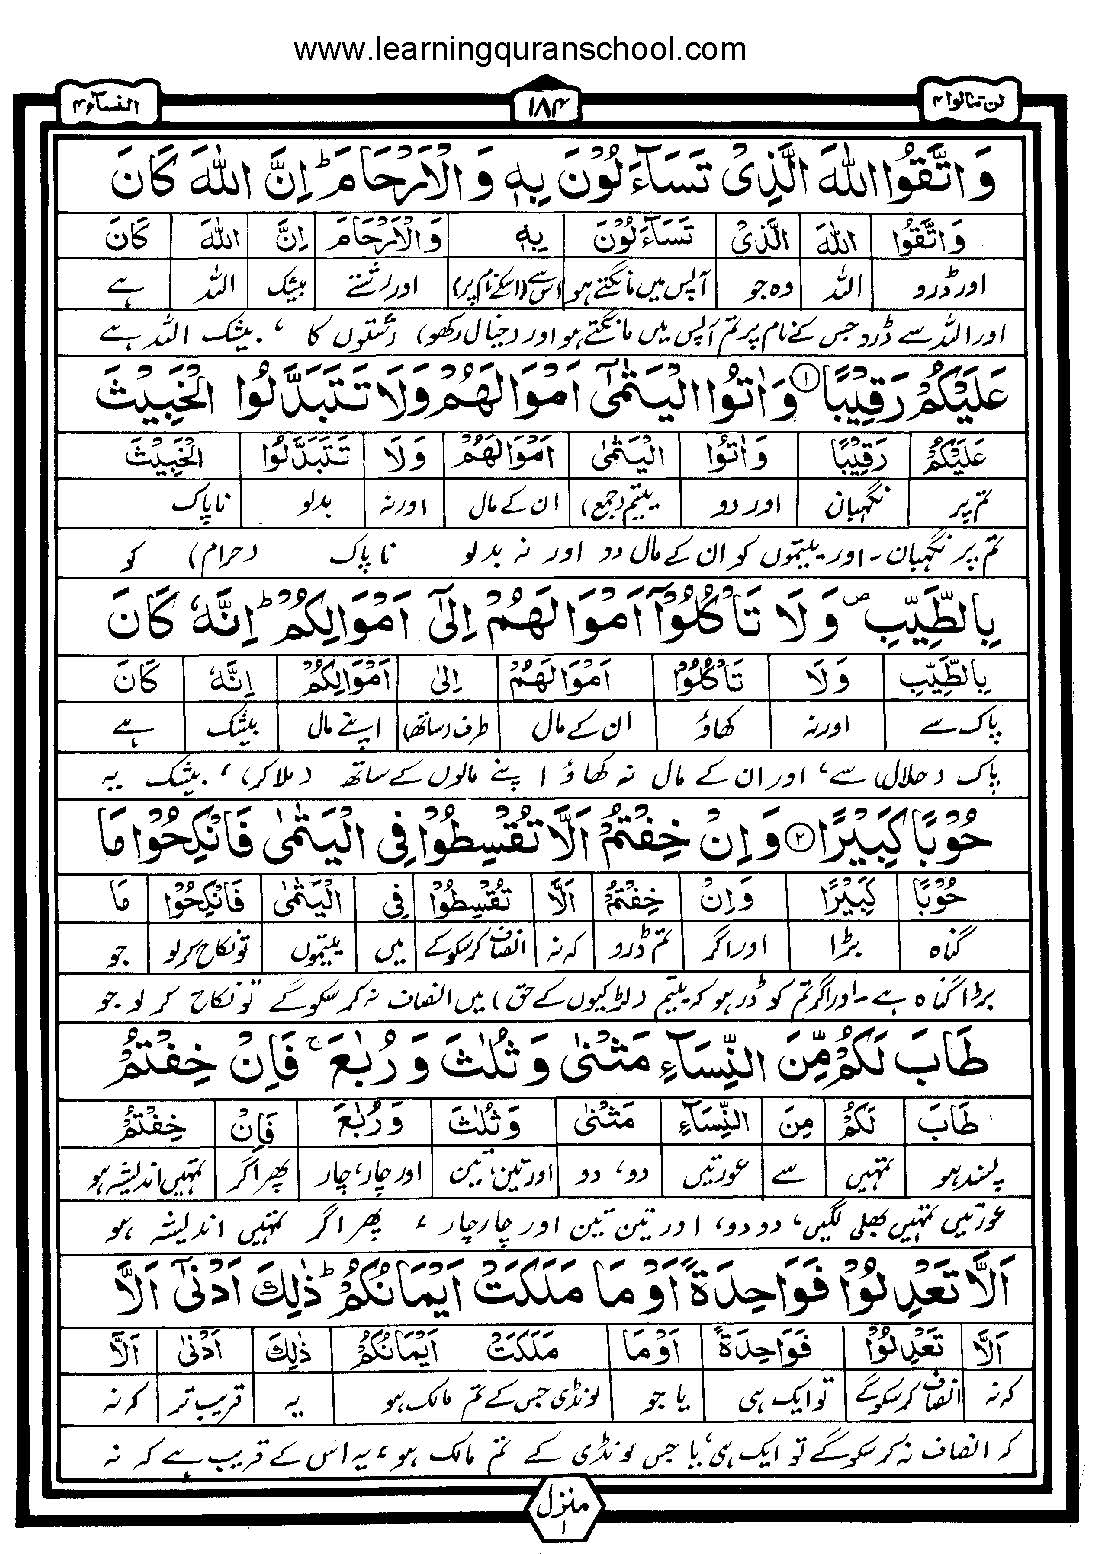 www.learningquranschool.com
لن تنالوا ۴
۱۸۴
النساء ۴
وَاتَّقُوا اللّٰهَ الَّذِیْ تَسَآءَلُوْنَ بِهٖ وَالْاَرْحَامَ ؕ اِنَّ اللّٰهَ كَانَ
وَاتَّقُوا اللّٰهَ الَّذِیْ تَسَآءَلُوْنَ بِهٖ وَالْاَرْحَامَ اِنَّ اللّٰهَ كَانَ
اور ڈرو اللہ وہ جو آپس میں مانگتے ہو اس سے (اسکے نام پر) اور رشتے بیشک اللہ ہے
اور اللہ سے ڈرو جس کے نام پر تم آپس میں مانگتے ہو اور (خیال رکھو) رشتوں کا ، بیشک اللہ ہے
عَلَیْكُمْ رَقِیْبًا ۝۱ وَاٰتُوا الْیَتٰمٰۤی اَمْوَالَهُمْ وَلَا تَتَبَدَّلُوا الْخَبِیْثَ
عَلَیْكُمْ رَقِیْبًا وَاٰتُوا الْیَتٰمٰی اَمْوَالَهُمْ وَلَا تَتَبَدَّلُوا الْخَبِیْثَ
تم پر نگہبان اور دو یتیم (جمع) ان کے مال اور نہ بدلو ناپاک
تم پر نگہبان ۔ اور یتیموں کو ان کے مال دو اور نہ بدلو ناپاک (حرام) کو
بِالطَّیِّبِ ۪ وَلَا تَاْكُلُوْۤا اَمْوَالَهُمْ اِلٰۤی اَمْوَالِكُمْ ؕ اِنَّهٗ كَانَ
بِالطَّیِّبِ وَلَا تَاْكُلُوْا اَمْوَالَهُمْ اِلٰی اَمْوَالِكُمْ اِنَّهٗ كَانَ
پاک سے اور نہ کھاؤ ان کے مال طرف (ساتھ) اپنے مال بیشک ہے
پاک (حلال) سے، اور ان کے مال نہ کھاؤ اپنے مالوں کے ساتھ (ملا کر) ، بیشک یہ
حُوْبًا كَبِیْرًا ۝۲ وَاِنْ خِفْتُمْ اَلَّا تُقْسِطُوْا فِی الْیَتٰمٰی فَانْكِحُوْا مَا
حُوْبًا كَبِیْرًا وَاِنْ خِفْتُمْ اَلَّا تُقْسِطُوْا فِی الْیَتٰمٰی فَانْكِحُوْا مَا
گناہ بڑا اور اگر تم ڈرو کہ نہ انصاف کر سکو گے میں یتیموں تو نکاح کر لو جو
بڑا گناہ ہے ۔ اور اگر تم کو ڈر ہو کہ یتیم (لڑکیوں کے حق) میں انصاف نہ کر سکو گے تو نکاح کر لو جو
طَابَ لَكُمْ مِّنَ النِّسَآءِ مَثْنٰی وَثُلٰثَ وَرُبٰعَ ۚ فَاِنْ خِفْتُمْ
طَابَ لَكُمْ مِنَ النِّسَآءِ مَثْنٰی وَثُلٰثَ وَرُبٰعَ فَاِنْ خِفْتُمْ
پسند ہو تمہیں سے عورتیں دو، دو اور تین، تین اور چار، چار پھر اگر تمہیں اندیشہ ہو
عورتیں تمہیں بھلی لگیں، دو دو، اور تین تین اور چار چار ، پھر اگر تمہیں اندیشہ ہو
اَلَّا تَعْدِلُوْا فَوَاحِدَةً اَوْ مَا مَلَكَتْ اَیْمَانُكُمْ ؕ ذٰلِكَ اَدْنٰۤی اَلَّا
اَلَّا تَعْدِلُوْا فَوَاحِدَةً اَوْ مَا مَلَكَتْ اَیْمَانُكُمْ ذٰلِكَ اَدْنٰی اَلَّا
کہ نہ انصاف کر سکو گے تو ایک ہی یا جو لونڈی جس کے تم مالک ہو یہ قریب تر کہ نہ
کہ انصاف نہ کر سکو گے تو ایک ہی، یا جس لونڈی کے تم مالک ہو، یہ اس کے قریب ہے کہ نہ
منزل
۱